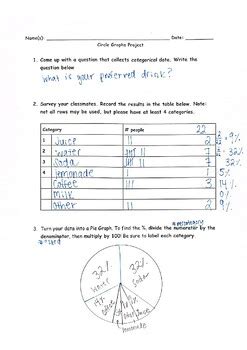 Name(s): Date:
Circle Graphs Project
1. Come up with a question that collects categorical data. Write the question below
What is your preferred drink?
2. Survey your classmates. Record the results in the table below. Note: not all rows may be used, but please have at least 4 categories.
22
Category # people
1 Juice || 2 9%
2 Water 7 32%
3 Soda 7 32%
4 Lemonade | 1 5%
Coffee ||| 3 14%
Milk 0%
Other || 2 9%
3. Turn your data into a Pie Graph. To find the %, divide the numerator by the denominator, then multiply by 100! Be sure to label each category
32%
Water
32%
Soda
Lemonade